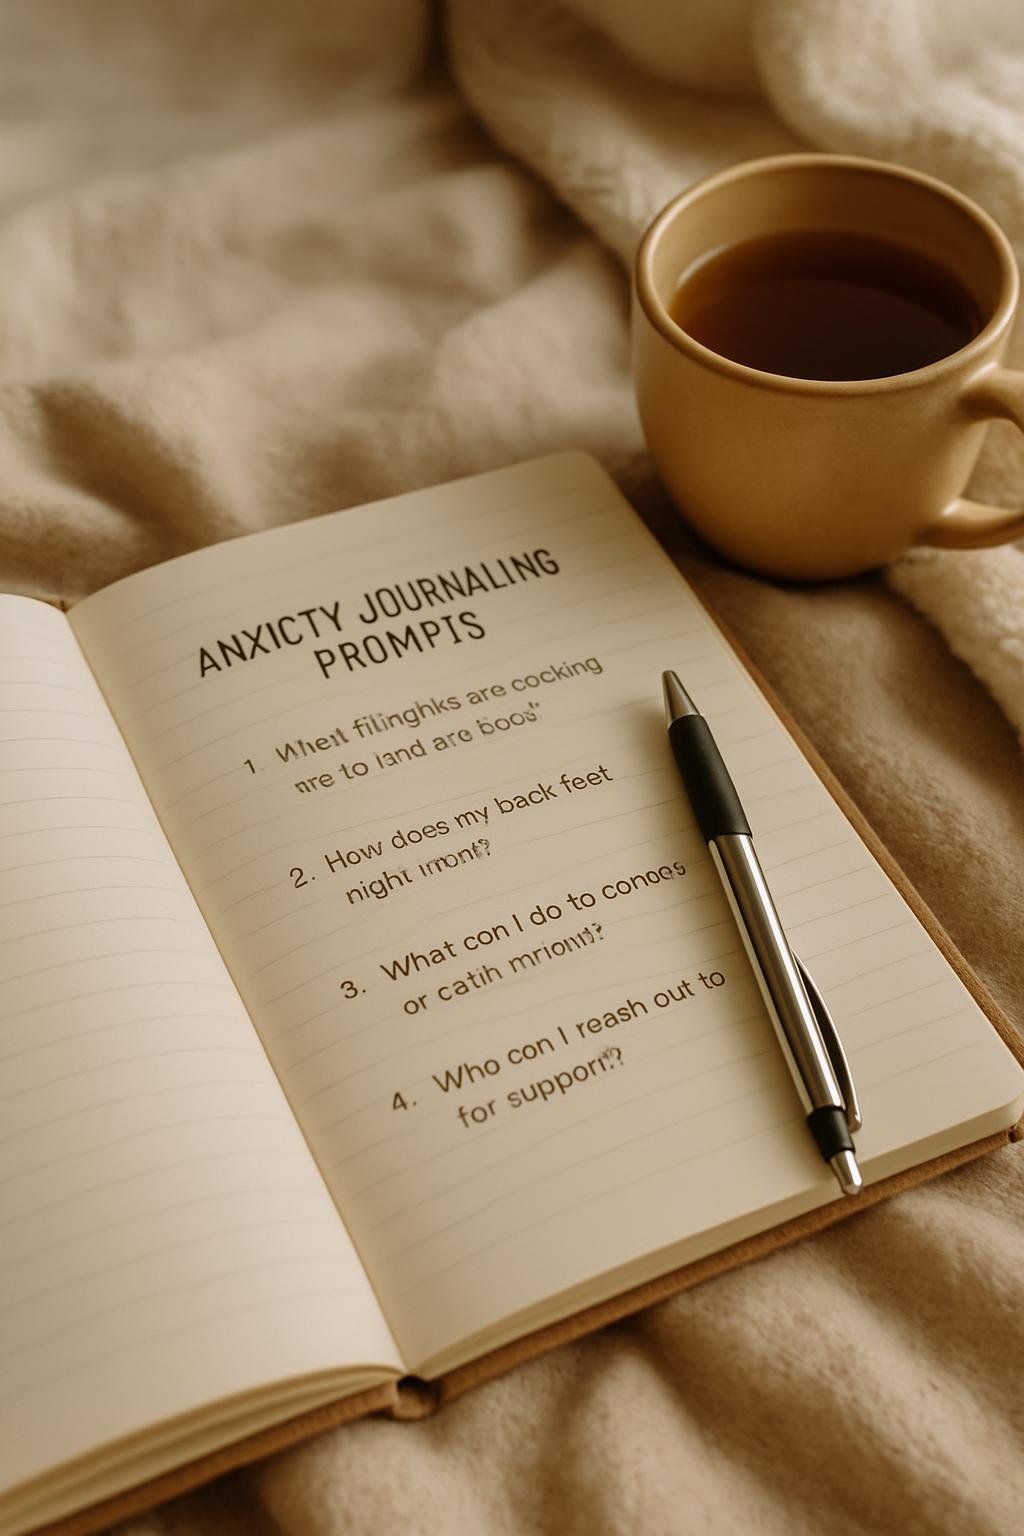 ANXICTY JOURNALING
PROMPIS
1. When filinghks are cocking
nre to land are bood
2. How does my back feet
night imont?
3. What con I do to conoes
or catih mrionn?
4. Who con I reash out to
for support?